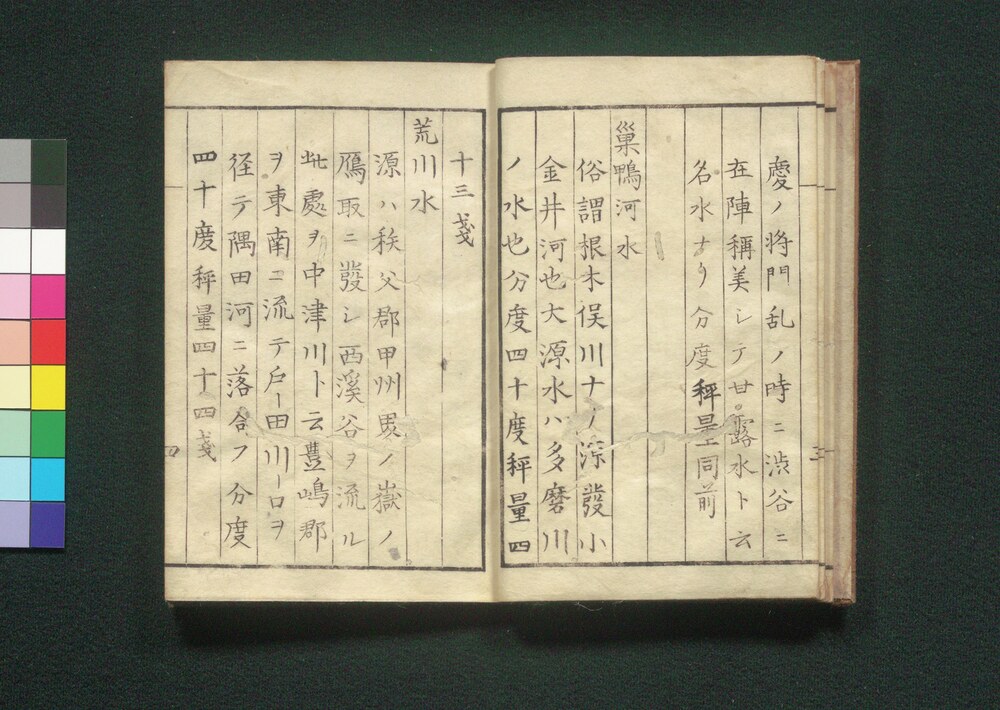 慶ノ将門乱ノ時ニ渋谷ニ
在陣稱美シテ甘露水ト云
名水ナリ分度秤量同前
巣鴨河水
俗謂根木俣川十ノ深發小
金井河也大源水ハ多磨川
ノ水也分度四十度秤量四
十三戔
荒川水
源ハ秩父郡甲州界ノ嶽ノ
鴈取ニ發シ西溪谷ヲ流ル
此處ヲ中津川ト云豊嶋郡
ヲ東南ニ流テ戸田川口ヲ
径テ隅田河ニ落合フ分度
四十度秤量四十四戔